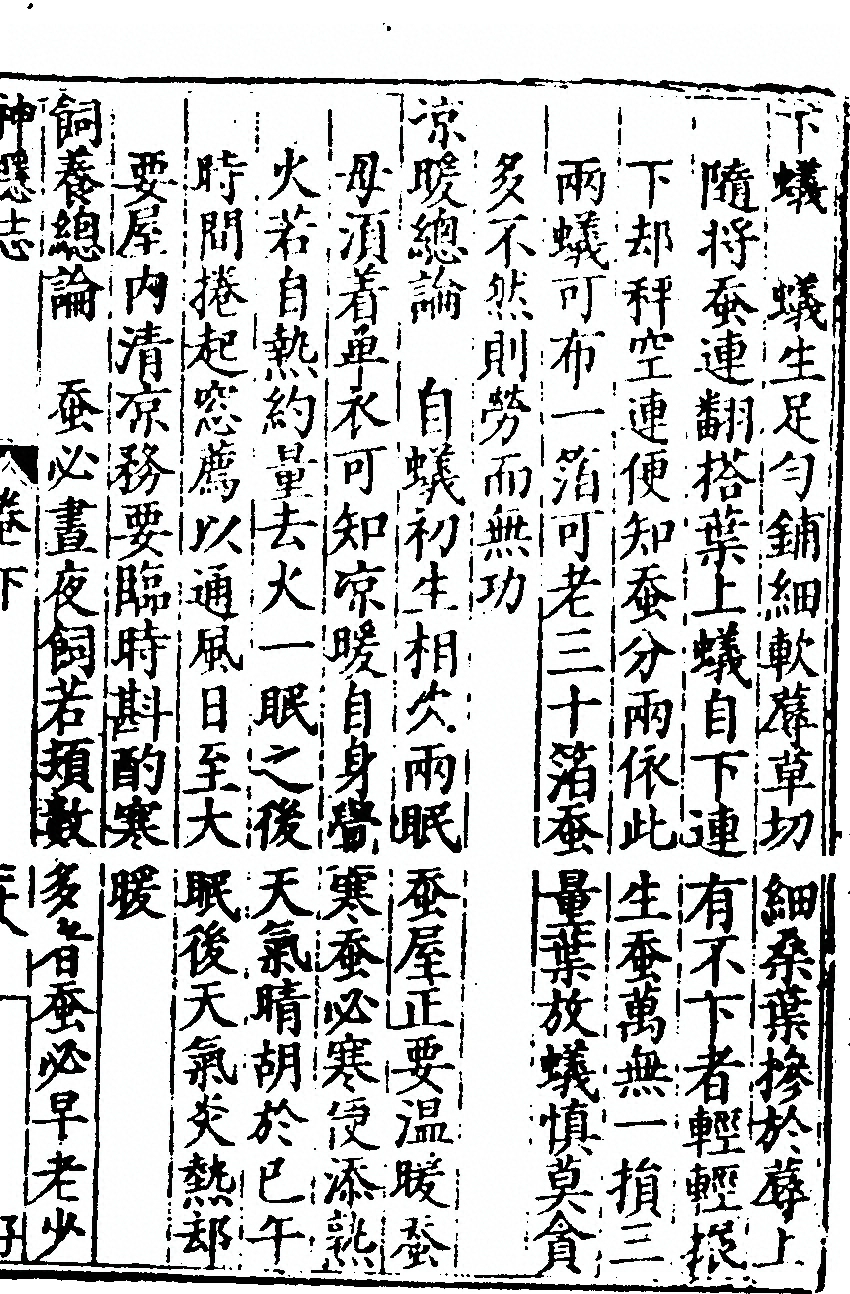 下蟻　蟻生足匀鋪細軟蓐草切細桑葉摻於蓐上
隨將蚕連翻搭葉上蟻自下連有不下者輕輕振
下却秤空連便知蚕分兩依此生蚕萬無一損三
兩蟻可布一箔可老三十箔蚕量葉放蟻慎莫貪
多不然則勞而無功
凉暖總論　自蟻初生相次兩眠蚕屋正要温暖蚕
母須着单衣可知凉暖自身覺寒蚕必寒便添熟
火若自熱約量去火一眠之後天氣晴朗於巳午
時間捲起窓薦以通風日至大眠後天氣炎熱却
要屋内清凉務要臨時斟酌寒暖
飼養總論　蚕必晝夜飼若頻數多者蚕必早老少
神隱志　卷下